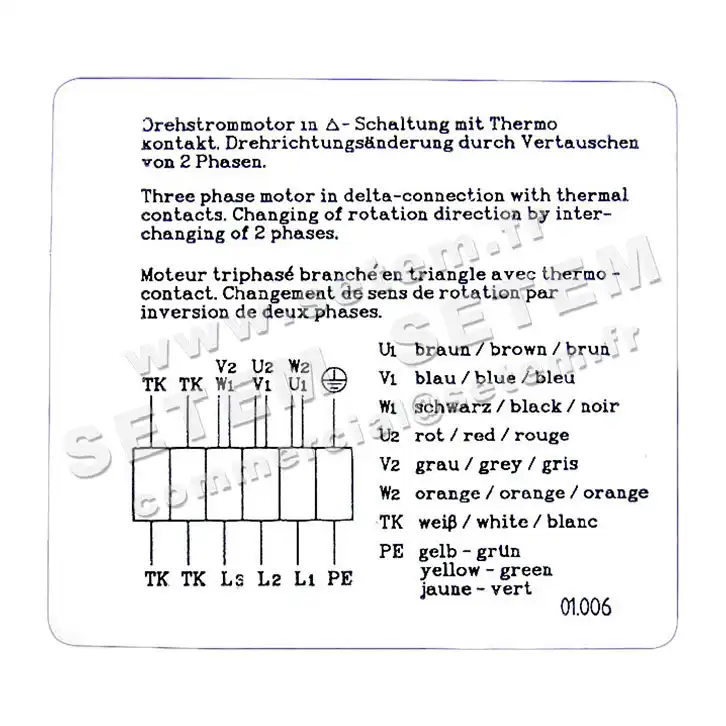 Drehstrommotor in Δ- Schaltung mit Thermo
kontakt. Drehrichtungsänderung durch Vertauschen
von 2 Phasen.
Three phase motor in delta-connection with thermal
contacts. Changing of rotation direction by inter-
changing of 2 phases.
Moteur triphasé branché en triangle avec thermo -
contact. Changement de sens de rotation par
inversion de deux phases.
V2 U2 W2
TK TK W1 V1 U1
TK TK L3 L2 L1 PE
U1 braun / brown / brun
V1 blau / blue / bleu
W1 schwarz / black / noir
U2 rot / red / rouge
V2 grau / grey / gris
W2 orange / orange / orange
TK weiß / white / blanc
PE gelb - grün
yellow - green
jaune - vert
01.006
www.setem.fr
SETEM SETEM
commercial@setem.fr